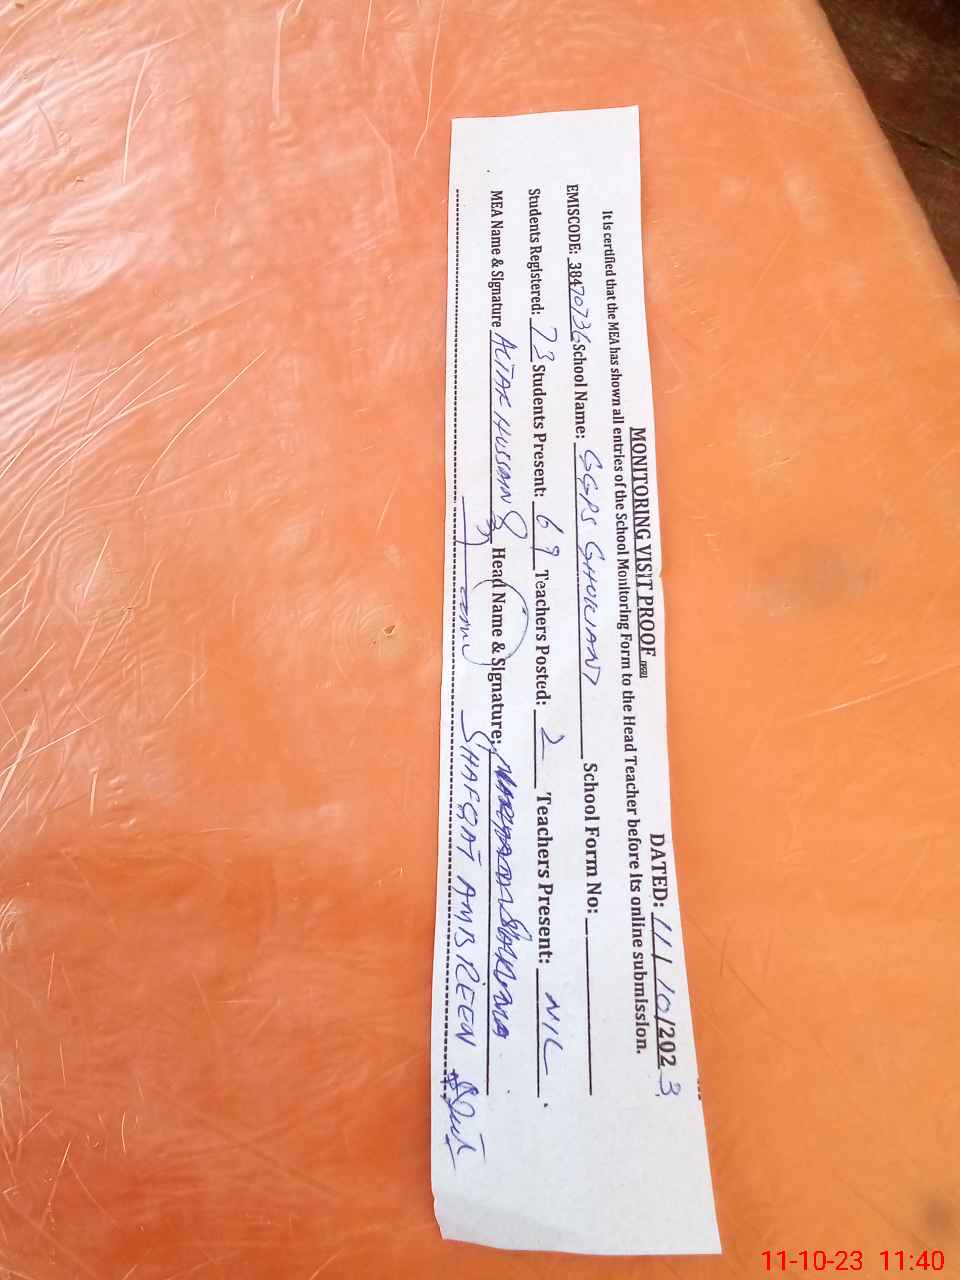 MONITORING VISIT PROOF DATED: 11/10/2023
It is certified that the MEA has shown all entries of the School Monitoring Form to the Head Teacher before its online submission.
EMISCODE: 38470736 School Name: GGPS School Form No:
Students Registered: 73 Students Present: 69 Teachers Posted: 2 Teachers Present: NIL.
MEA Name & Signature ALTAF HUSSAIN Head Name & Signature:
SHAFQAT AMBREEN
11-10-23 11:40